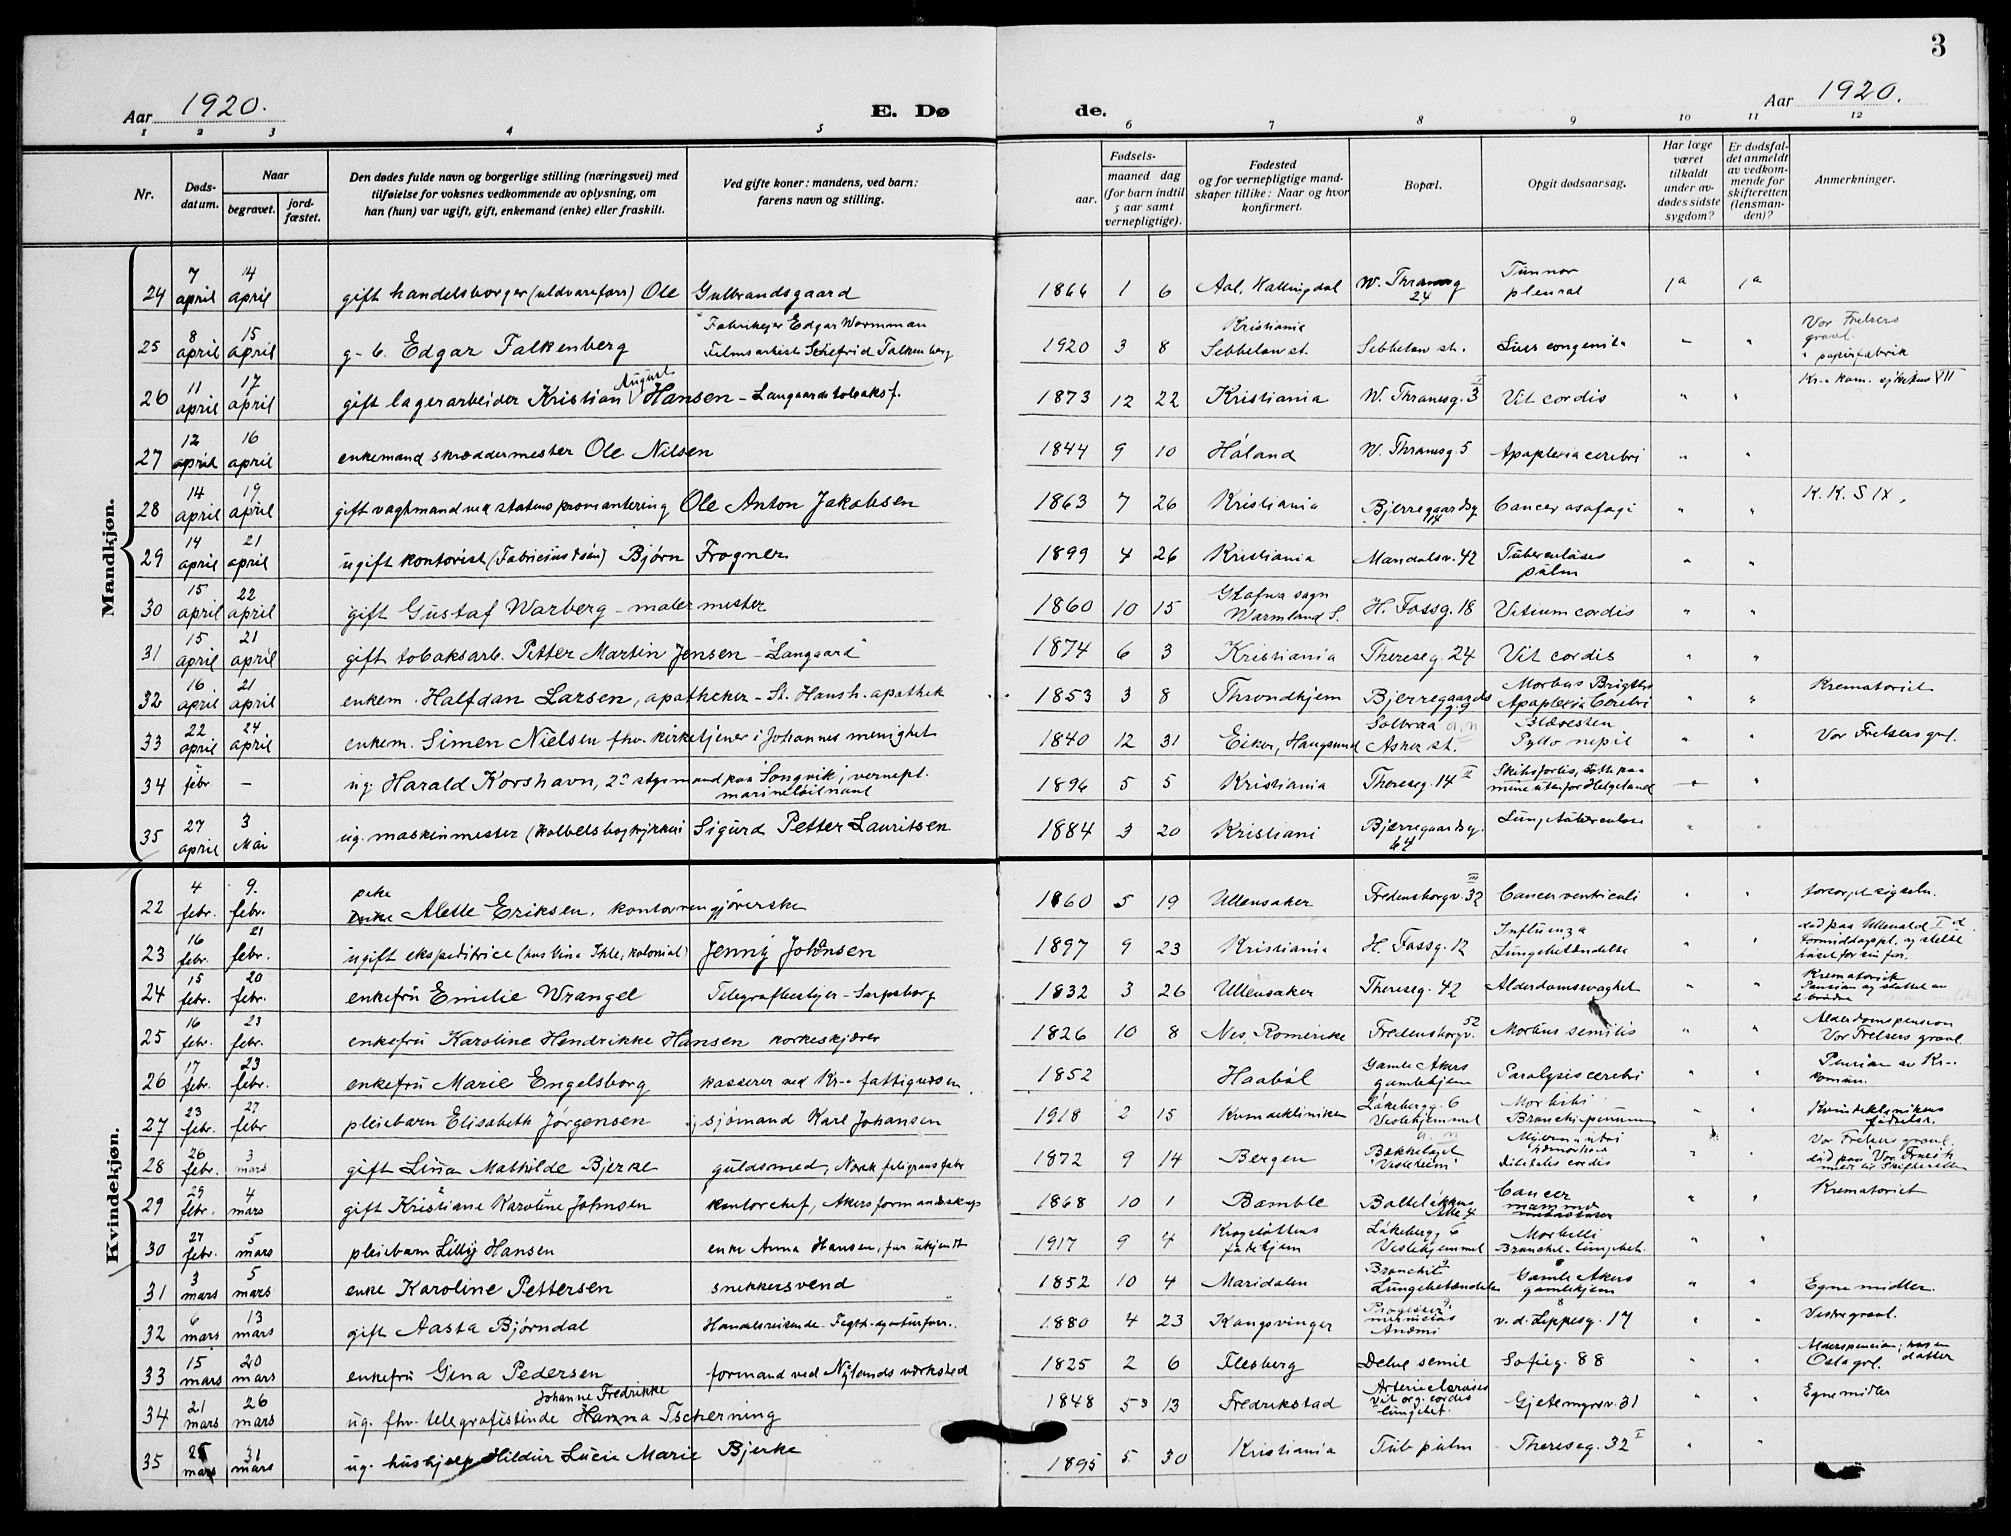 3
Aar 1920. E. Døde. Aar 1920.
1 2 3 4 5 6 7 8 9 10 11 12
Nr.
Døds-datum.
Naar
begravet.
jord-fæstet.
Den dødes fulde navn og borgerlige stilling (næringsvei) med
tilføielse for voksnes vedkommende av oplysning, om
han (hun) var ugift, gift, enkemand (enke) eller fraskilt.
Ved gifte koner: mandens, ved barn:
farens navn og stilling.
Fødsels-
aar.
maaned dag
(for barn indtil
5 aar samt
vernepligtige).
Fødested
og for vernepligtige mand-
skaper tillike: Naar og hvor
konfirmert.
Bopæl.
Opgit dødsaarsag.
Har læge
været
tilkaldt
under av-
dødes sidste
sygdom?
Er dødsfal-
det anmeldt
av vedkom-
mende for
skifteretten
(lensman-
den)?
Anmerkninger.
Mandkjøn.
24 7 april 14 april gift handelsborger (uldvareforr) Ole Gulbrandsgaard 1866 1 6 Aal, Hallingdal W. Thranesg 24 pleural ja ja
25 8 april 15 april g-b. Edgar Falkenberg Fabrikeier Edgar Wormman 1920 3 8 Kristiania Sebbelow st. Sebbelow st. Lues congenita " " Vor Frelsers gravl. papirfabrik
26 11 april 17 april gift lagerarbeider Kristian August Hansen - Langaards tobaksf. 1873 12 22 Kristiania W. Thranesg. 3 I Vit cordis " " Kr.a kom. sykehus VII
27 12 april 16 april enkemand skræddermester Ole Nilsen 1844 9 10 Høland W. Thranesg. 5 Apoplexia cerebri " "
28 14 april 19 april gift vagtmand ved statens proviantering Ole Anton Jakobsen 1863 7 26 Kristiania Bjerregaardsg 14 Cancer øsofagi " " K. K. S IX.
29 14 april 21 april ugift kontorist (Fabricius & søn) Bjørn Frogner 1899 4 26 Kristiania Mandalsv. 42 Tuberculoses pulm " "
30 15 april 22 april gift Gustaf Warberg - malermester 1860 10 15 Glafva sogn Warmland S. H. Fossg. 18 Vitium cordis " "
31 15 april 21 april gift tobaksarb. Petter Martin Jensen - "Langaard" 1874 6 3 Kristiania Thereseg. 24 Vit cordis " "
32 16. april 21 april enkem. Halfdan Larsen, apotheker - St. Hansh. apothek 1853 3 8 Throndhjem Bjerregaards g. 9 Morbus Brigthii Apoplexia Cerebri " " Krematoriet
33 22 april 24 april enkem. Simen Nielsen fhv. kirketjener i Johannes menighet 1840 12 31 Eiker, Haugsund Solbraa Asker st. Blæresten " " Vor Frelsers gvl.
34 febr. - ug. Harald Korshavn, 2den styrmand paa "Songvik", vernepl. 1896 5 5 Kristiania Thereseg. 14 II Skibsforlis, støtte paa mine utenfor Helgeland "
35 27 april 3 Mai ug. maskinmester Sigurd Petter Lauritsen 1884 3 20 Kristiani Bjerregaardsg. 64 Lungetuberculose " "
Kvindekjøn.
22 4 febr. 9. febr. pike Alette Eriksen, kontorrengjørerske 1860 5 19 Ullensaker Fredensborgv. 32 III Cancer ventriculi " "
23 16 febr. 21 febr. ugift ekspeditrice Jenny Johnsen 1897 9 23 Kristiania H. Fossg. 12 Influenza Lungebetændelse " " død paa Ullevaal
24 15 febr. 20 febr. enkefru Emilie Wrangel Telegrafbestyrer - Sarpsborg 1832 3 26 Ullensaker Thereseg. 42 Alderdomssvaghet " " Krematoriet
25 16 febr. 23 febr. enkefru Karoline Hendrikke Hansen korkeskjærer 1826 10 8 Nes, Romerike Fredensborgv. 52 Morbus senilis " " Alderdomspension Vor Frelsers gravl
26 17 febr. 23 febr. enkefru Marie Engelsborg kasserer ved Kr.a fattigvæsen 1852 Haabøl Gamle Akers gamlehjem Paralysis cerebri " " Pension av Kr.a komm.
27 23 febr. 27 febr pleiebarn Elisabeth Jørgensen sjømand Karl Johansen 1918 2 15 Kvindekliniken Løkebergg. 6 Veslehjemmet Morbilli " " Kvindeklinikens
28 26 febr. 3 mars gift Lina Mathilde Bjerke guldsmed, Norsk filigransfabr 1872 9 14 Bergen Bekkelaget "Vesleheim" dilitatis cordis " " Vor Frelsers gravl.
29 29 febr. 4 mars gift Kristiane Karoline Johnsen kontorchef, Akers formandskap 1868 10 1 Bamble Bolteløkkens Alle 4 Cancer mammæ " " Krematoriet
30 27 febr. 5 mars pleiebarn Lilly Hansen enke Anna Hansen, far ukjendt 1917 9 4 Løkebergg 6 Veslehjemmet Morbilli " "
31 3 mars 5 mars enke Karoline Pettersen snekkersvend 1852 10 4 Maridalen Bronchit Lungebetændelse Gamle Akers gamlehjem " " Egne midler.
32 6 mars 13 mars gift Aasta Bjørndal Handelsreisende 1880 4 23 Kongsvinger Anæmi v. d. Lippesg. 17 " " Vestre gravl.
33 15 mars 20 mars enkefru Gina Pedersen formand ved Nylands værksted 1825 2 6 Flesberg Debil senil Sofieg. 88 " " datter
34 21 mars 26 mars ug. fhv. telegrafistinde Johanne Fredrikke Hanna Tscherning 1848 5 13 Fredrikstad Gjetemyrsv. 31 " " Egne midler
35 mars 31 mars ug. hushjelp Hildur Lucie Marie Bjerke 1895 5 30 Kristiania Tub pulm Thereseg. 32 I " "